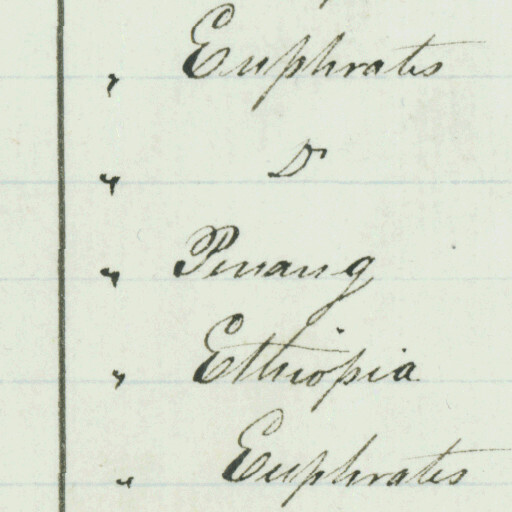 " Euphrates
" Do
" Penang
" Ethiopia
" Euphrates